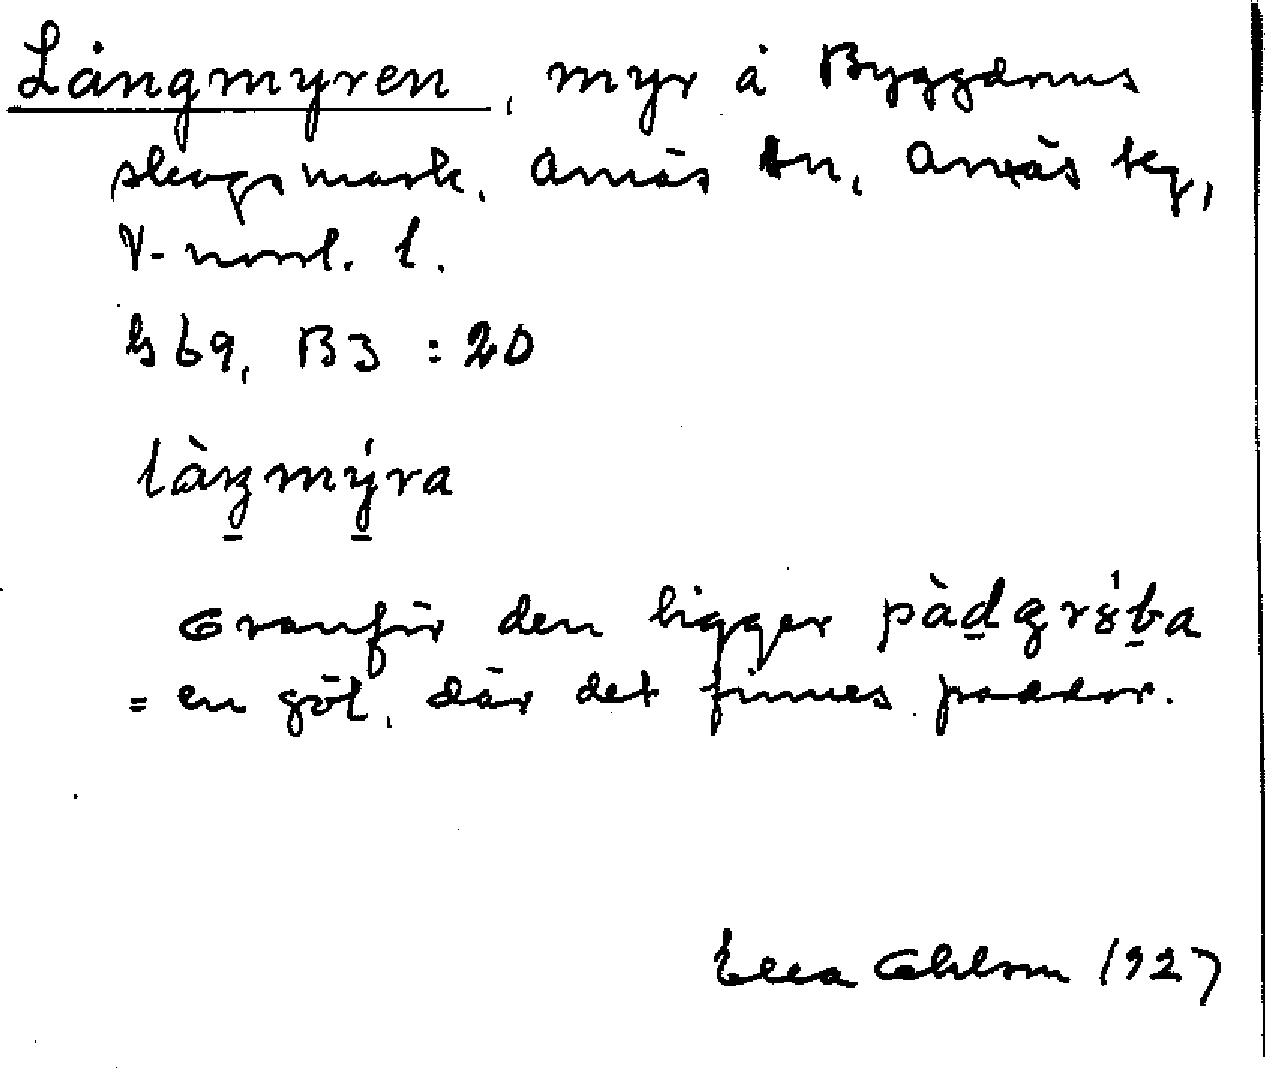 Långmyren, myr å Byggdanus
skogsmark, Arnäs sn, Arnäs tg,
V-norrl. l.
G 69, B3 : 20
låŋmy̱ra
Granför den ligger pàd gr ba
= en göl, där det finnes paddor.
Ella Ohlson 1927